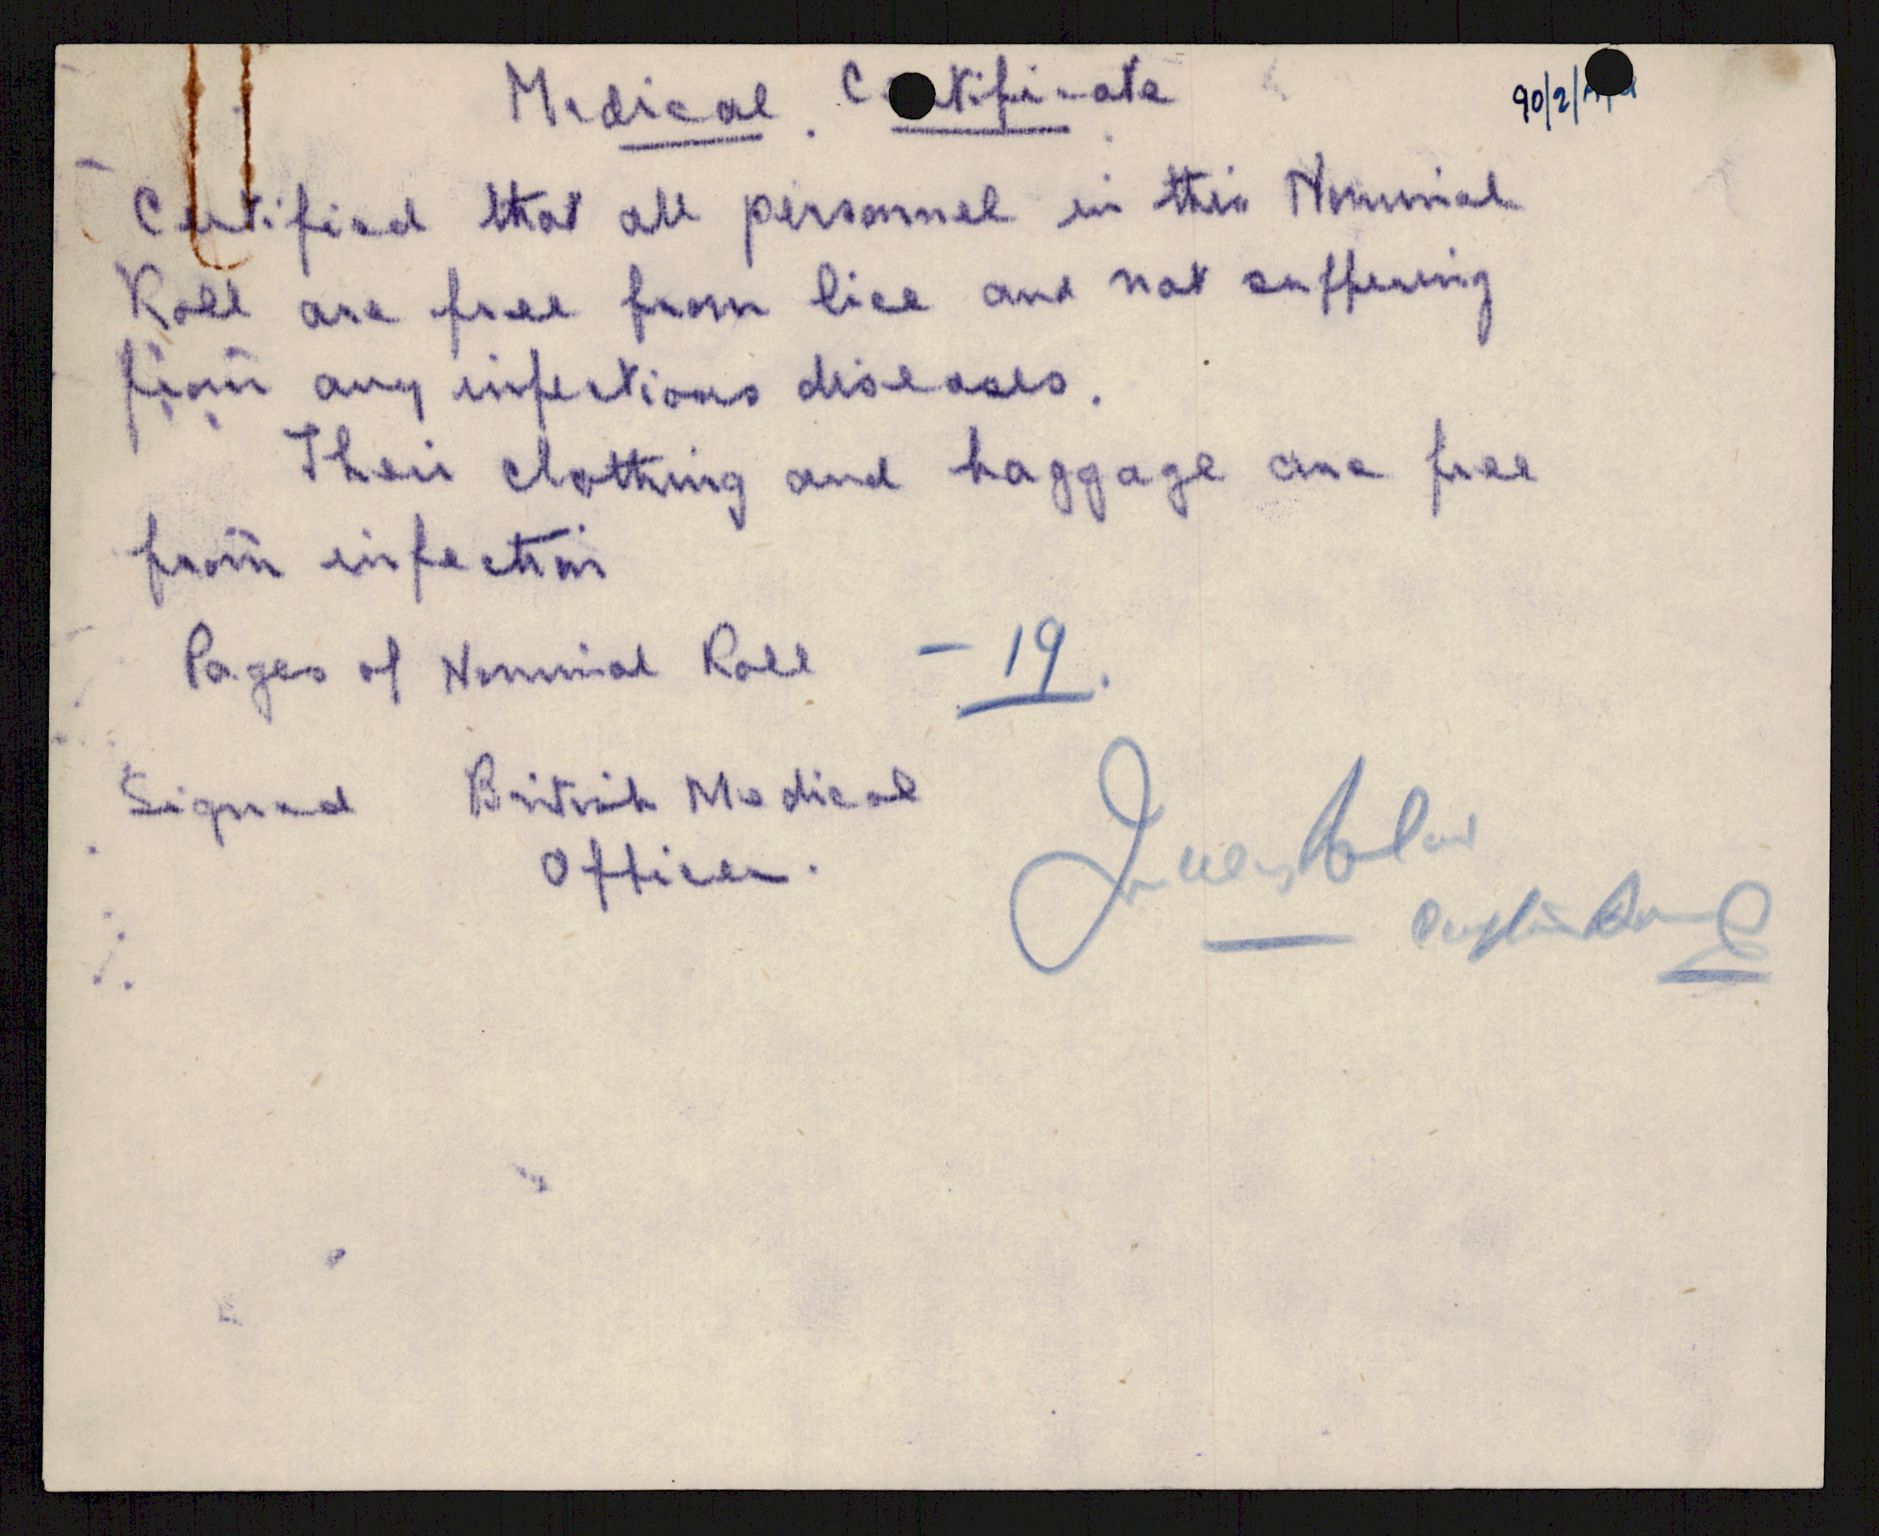 Medical. Certificate
90/2/
Certified that all personnel in this Nominal
Roll are free from lice and not suffering
from any infectious diseases.
Their clothing and baggage are free
from infection
Pages of Nominal Roll - 19.
Signed British Medical
Officer.